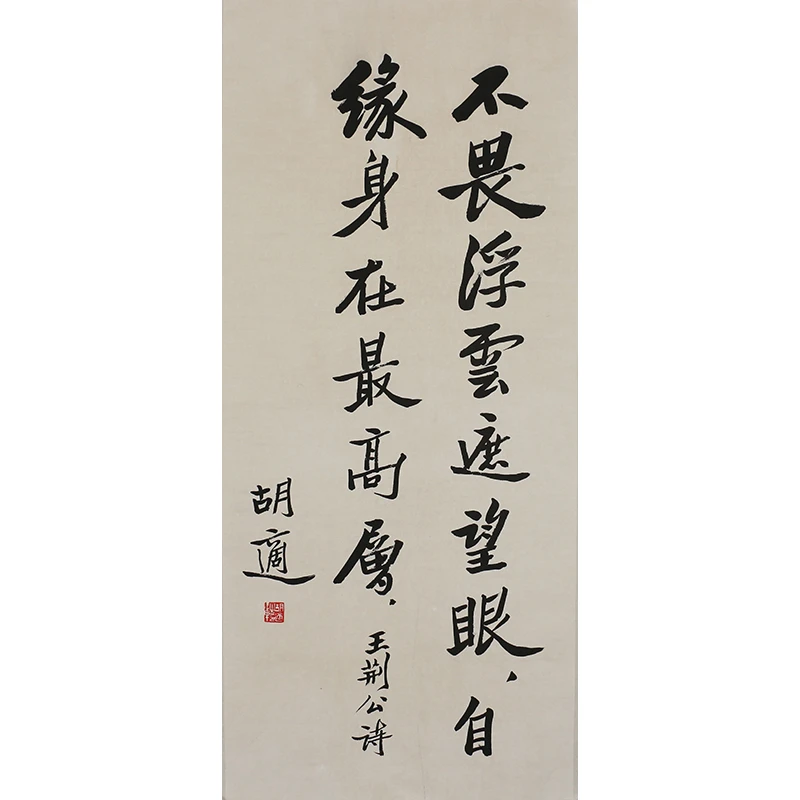 不畏浮雲遮望眼，自
緣身在最高層，王荆公诗
胡適